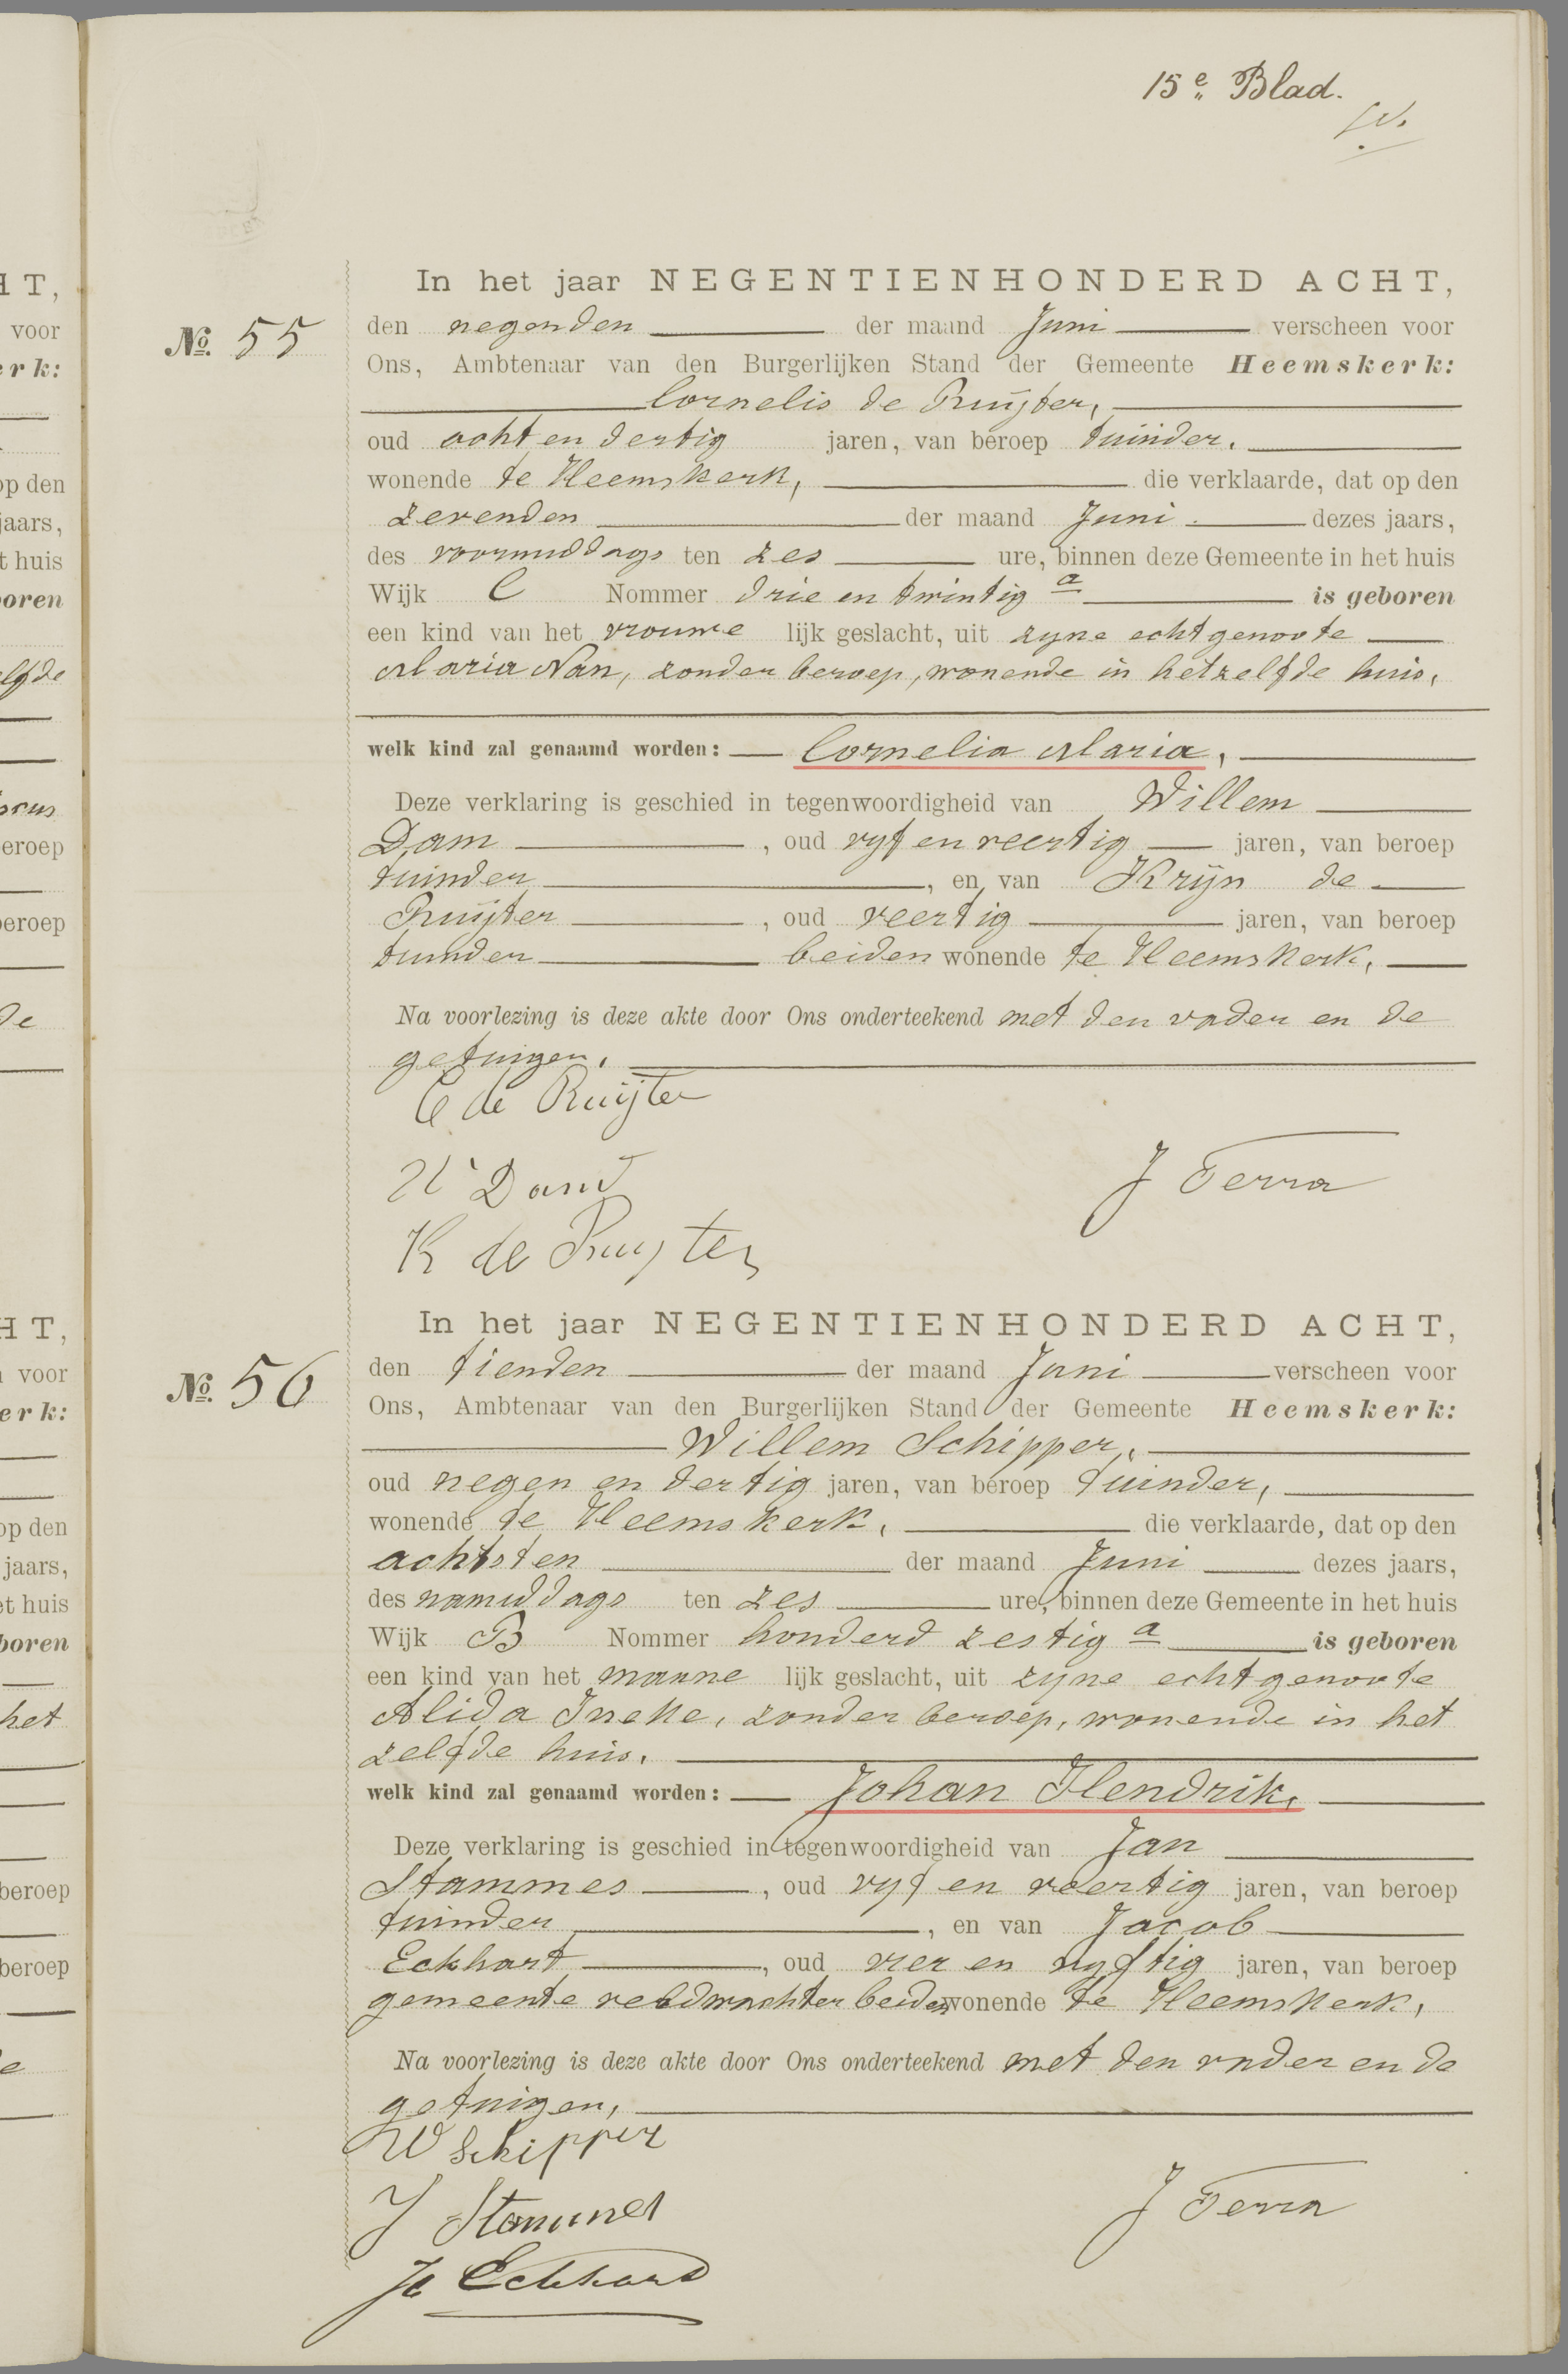 15e Blad.
No. 55
In het jaar NEGENTIENHONDERD ACHT,
den negenden der maand Juni verscheen voor
Ons, Ambtenaar van den Burgerlijken Stand der Gemeente Heemskerk:
Cornelis de Ruijter,
oud acht en dertig jaren, van beroep tuinder,
wonende te Heemskerk, die verklaarde, dat op den
zevenden der maand Juni dezes jaars,
des voormiddags ten zes ure, binnen deze Gemeente in het huis
Wijk C Nommer drie en twintig a is geboren
een kind van het vrouwe lijk geslacht, uit zyne echtgenoote
Maria Nan, zonder beroep, wonende in hetzelfde huis,
welk kind zal genaamd worden: Cornelia Maria,
Deze verklaring is geschied in tegenwoordigheid van Willem
Dam, oud vyf en veertig jaren, van beroep
tuinder, en van Krijn de
Ruijter, oud veertig jaren, van beroep
tuinder beiden wonende te Heemskerk,
Na voorlezing is deze akte door Ons onderteekend met den vader en de
getuigen,
C de Ruijter
W Dam
J Terra
K de Ruyter
No. 56
In het jaar NEGENTIENHONDERD ACHT,
den tienden der maand Juni verscheen voor
Ons, Ambtenaar van den Burgerlijken Stand der Gemeente Heemskerk:
Willem Schipper,
oud negen en dertig jaren, van beroep tuinder,
wonende te Heemskerk, die verklaarde, dat op den
achtsten der maand Juni dezes jaars,
des namiddags ten zes ure, binnen deze Gemeente in het huis
Wijk B Nommer honderd zestig a is geboren
een kind van het manne lijk geslacht, uit zyne echtgenoote
Alida Ineke, zonder beroep, wonende in het
zelfde huis.
welk kind zal genaamd worden: Johan Hendrik,
Deze verklaring is geschied in tegenwoordigheid van Jan
Stammes, oud vyf en veertig jaren, van beroep
tuinder, en van Jacob
Eckhart, oud vier en vyftig jaren, van beroep
gemeente veldwachter beiden wonende te Heemskerk,
Na voorlezing is deze akte door Ons onderteekend met den vader en de
getuigen,
W Schipper
J Stammes
J Terra
Jb Eckhard